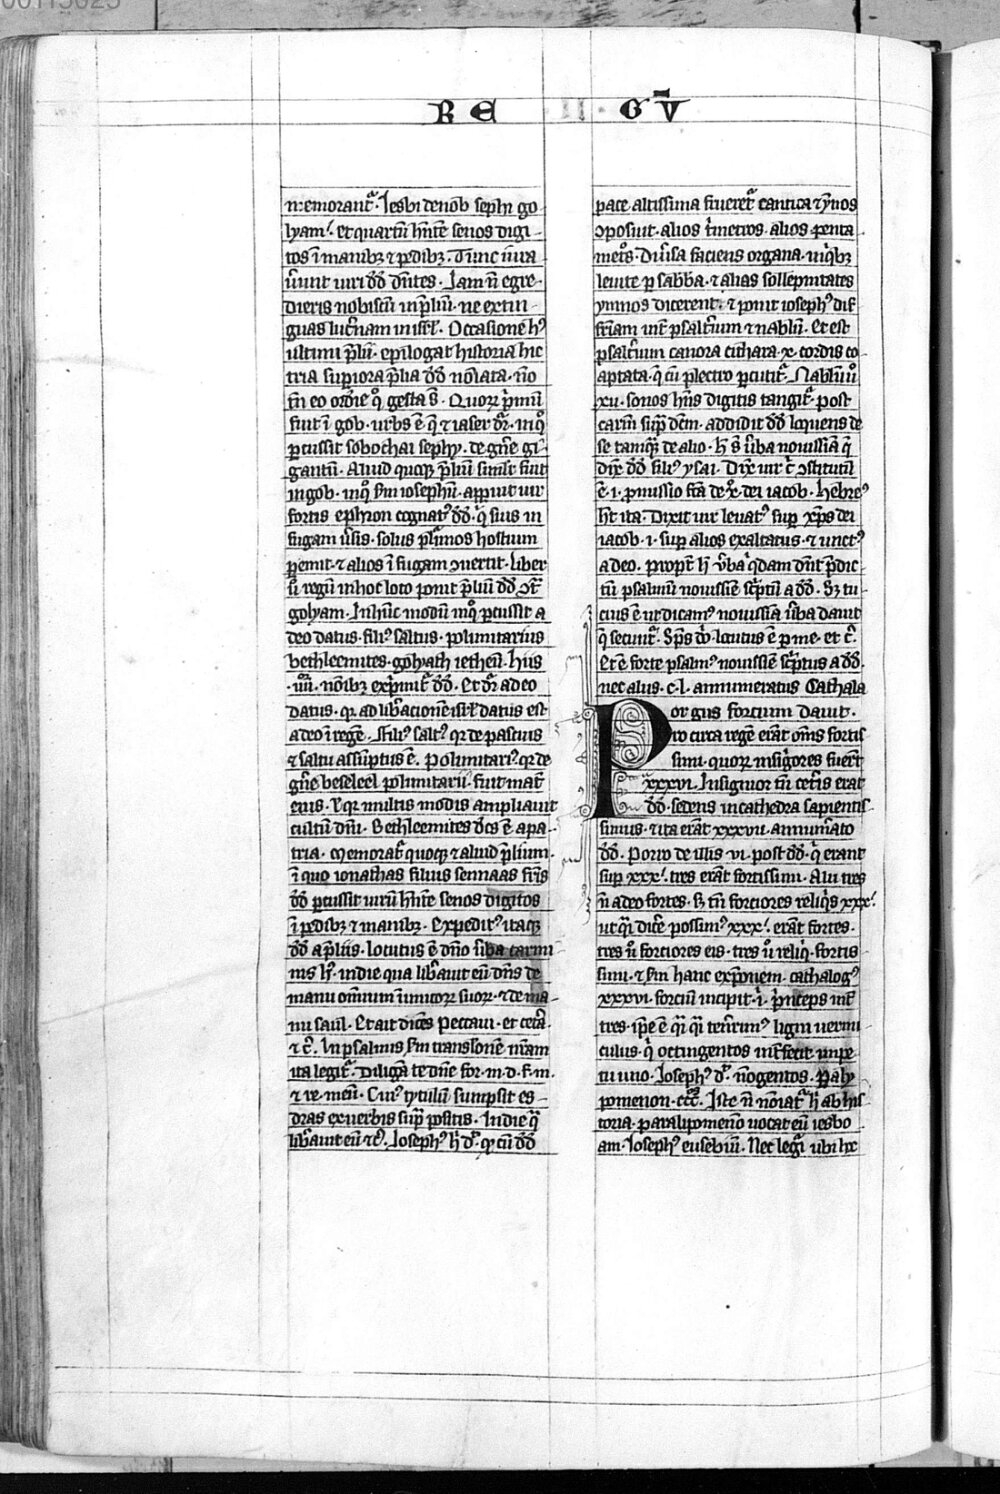 00113025
RE · II · GV̄
memorant᷑. Iesbi denob sephi go
lyam. et quartū hn̄tē senos digi-
tos ī manibꝫ ⁊ pedibꝫ. Tunc iura
ūunt uiri dd̄ dn̄tes. Iam n̄ egre-
dieris nobiscū in p̄liū. ne extin-
guas luc̄nam in isrl̄. Occasione hꝰ
ultimi p̄lii. epilogat historia hic
tria superiora p̄lia dd̄ nō lata. nō
tn̄ eo ordīe q̊ gesta s̄. Quoꝝ p̄mū
fuit ī gob. urbs ē q̄ ⁊ iaser dr̄. in q̊
ꝑcussit sobochai sephy. de gn̄e gi-
gantū. Aliud quoqꝫ p̄liū simlr̄ fuit
in gob. in q̊ sm̄ iosephū. apparuit uir
fortis ephron cognatꝰ dd̄. q̄ suis in
fugam ūsis. solus plīmos hostium
ꝑemit. ⁊ alios ī fugam ɔuertit. liber
u̇ regū in hoc loco ponit p̄liū dd̄ ɔt᷑
golyam. In hūc modū in q̊ ꝑcussit a
deo datus. filiꝰ saltus. polimitarius
bethleemites. golyath ietheū. Hiis
.iiii. noībꝫ exp̄mit᷑ dd̄. Et dr̄ adeo
datus. qꝛ ad lib̄acionē isrl̄ datus est
a deo ī regē. Filiꝰ saltꝰ. qꝛ de pascuis
⁊ saltu assūptus ē. Polimitariꝰ. qꝛ de
gn̄e beseleel polimitarii. fuit mat᷑
eius. ł qꝛ multis modis ampliauit
cultū dn̄i. Bethleemites dc̄s ē a pa-
tria. Memorat᷑ quoqꝫ ⁊ aliud p̄lium.
ī quo ionathas filius sennaas fr̄is
dd̄ ꝑcussit uirū hn̄tē senos digitos
ī pedibꝫ ⁊ manibꝫ. Expeditꝰ itaqꝫ
dd̄ a p̄liis. locutus ē dn̄o ūba carmi
nis hꝰ. in die qua lib̄auit eū dn̄s de
manu omnium īimicoꝝ suoꝝ. ⁊ de ma-
nu saul. Et ait dicēs Peccaui. et cetā.
⁊ c̄. In psalmis sm̄ translōnē nr̄am
ita legit᷑. Diligā te dn̄e for. m. d. f. m.
⁊ re. meū. Cuiꝰ tytulū sumpsit es-
dras ex uerbis sup̄ positis. In die q̄
lib̄auit eū ⁊c̄. Iosephꝰ h̄ dt̄. qꝫ cū dd̄
pace altissima frueret᷑ cantica ⁊ ymnos
ɔposuit. alios t̄metros. alios penta
metꝰs. Diūsa faciens organa. in qꝫbꝫ
leuite ꝑ sabb̄a. ⁊ alias sollepnitates
ymnos dicerent. ⁊ ponit iosephꝰ dif
fr̄iam int᷑ psaltīum ⁊ nablū. Et est
psaltīum canora cithara .x. cordis co
aptata. q̄ cū plectro ꝑcutit᷑. Nablū u̇
.xii. sonos hn̄s digitis tangit᷑. post
carm̄ sup̄ dc̄m. addidit dd̄ loquens de
se tamqꝫ de alio. h̄ s̄ ūba nouissīa q̄
dix̄ dd̄ filiꝰ ysai. Dix̄ uir c̄ ɔstitutū
ē .i. ꝓmissio fc̄a de xꝰ. dei iacob. hebreꝰ
ht̄ ita. Dixit uir leuatꝰ sup xp̄s dei
iacob .i. sup alios exaltatus. ⁊ unctꝰ
a deo. ꝓpt̄ h̄ ūba qꝫdam dn̄t p̄dic
tū psalmū nouissīe sc̄ptū a dd̄. Sꝫ tu
cius ē ut dicamꝰ nouissīa ūba dauit
q̄ secūt᷑. Sp̄s dn̄i locutus ē ꝑ me. et c̄.
Et ē forte psalmꝰ nouissīe sc̄ptus a dd̄.
nec alius .c.l. annumeratus Cathala
Porgus forcium dauit.
ro circa regē erāt om̄s fortis
simi. quoꝝ insigōres fuerūt
xxxvi. Insignior tn̄ cet̄is erat
dd̄. sedens in cathedra sapientis-
simus. ⁊ ita erāt xxxvii. annum̄ato
dd̄. Porro de illis vi. post dd̄. q̄ erant
sup xxxᵗᵃ. tres erāt fortissimi. Alii tres
n̄ adeo fortes. sꝫ tn̄ forciores reliq̄s xxxᵗᵃ.
ut q̄i dic̄e possimꝰ xxxᵗᵃ. erāt fortes.
tres u̇ forciores eis. tres u̇ reliq̄. fortis-
simi. ⁊ sm̄ hanc exp̄onem. cathalogꝰ
xxxvi. forciū incipit. i. p̄nceps int᷑
tres. ip̄e ē q̄i q̄i ten̄rimꝰ ligni uermi
culus. q̄ octingentos int᷑fecit impe
tu uno. Iosephꝰ dt̄. nōgentos. Paly
pomenon. ccc. Iste n̄ noīat᷑ h̄ ab his
toria. paralipomenō uocat eū iesbo
am. Iosephꝰ eusebiū. Nec legr̄ ubi hec